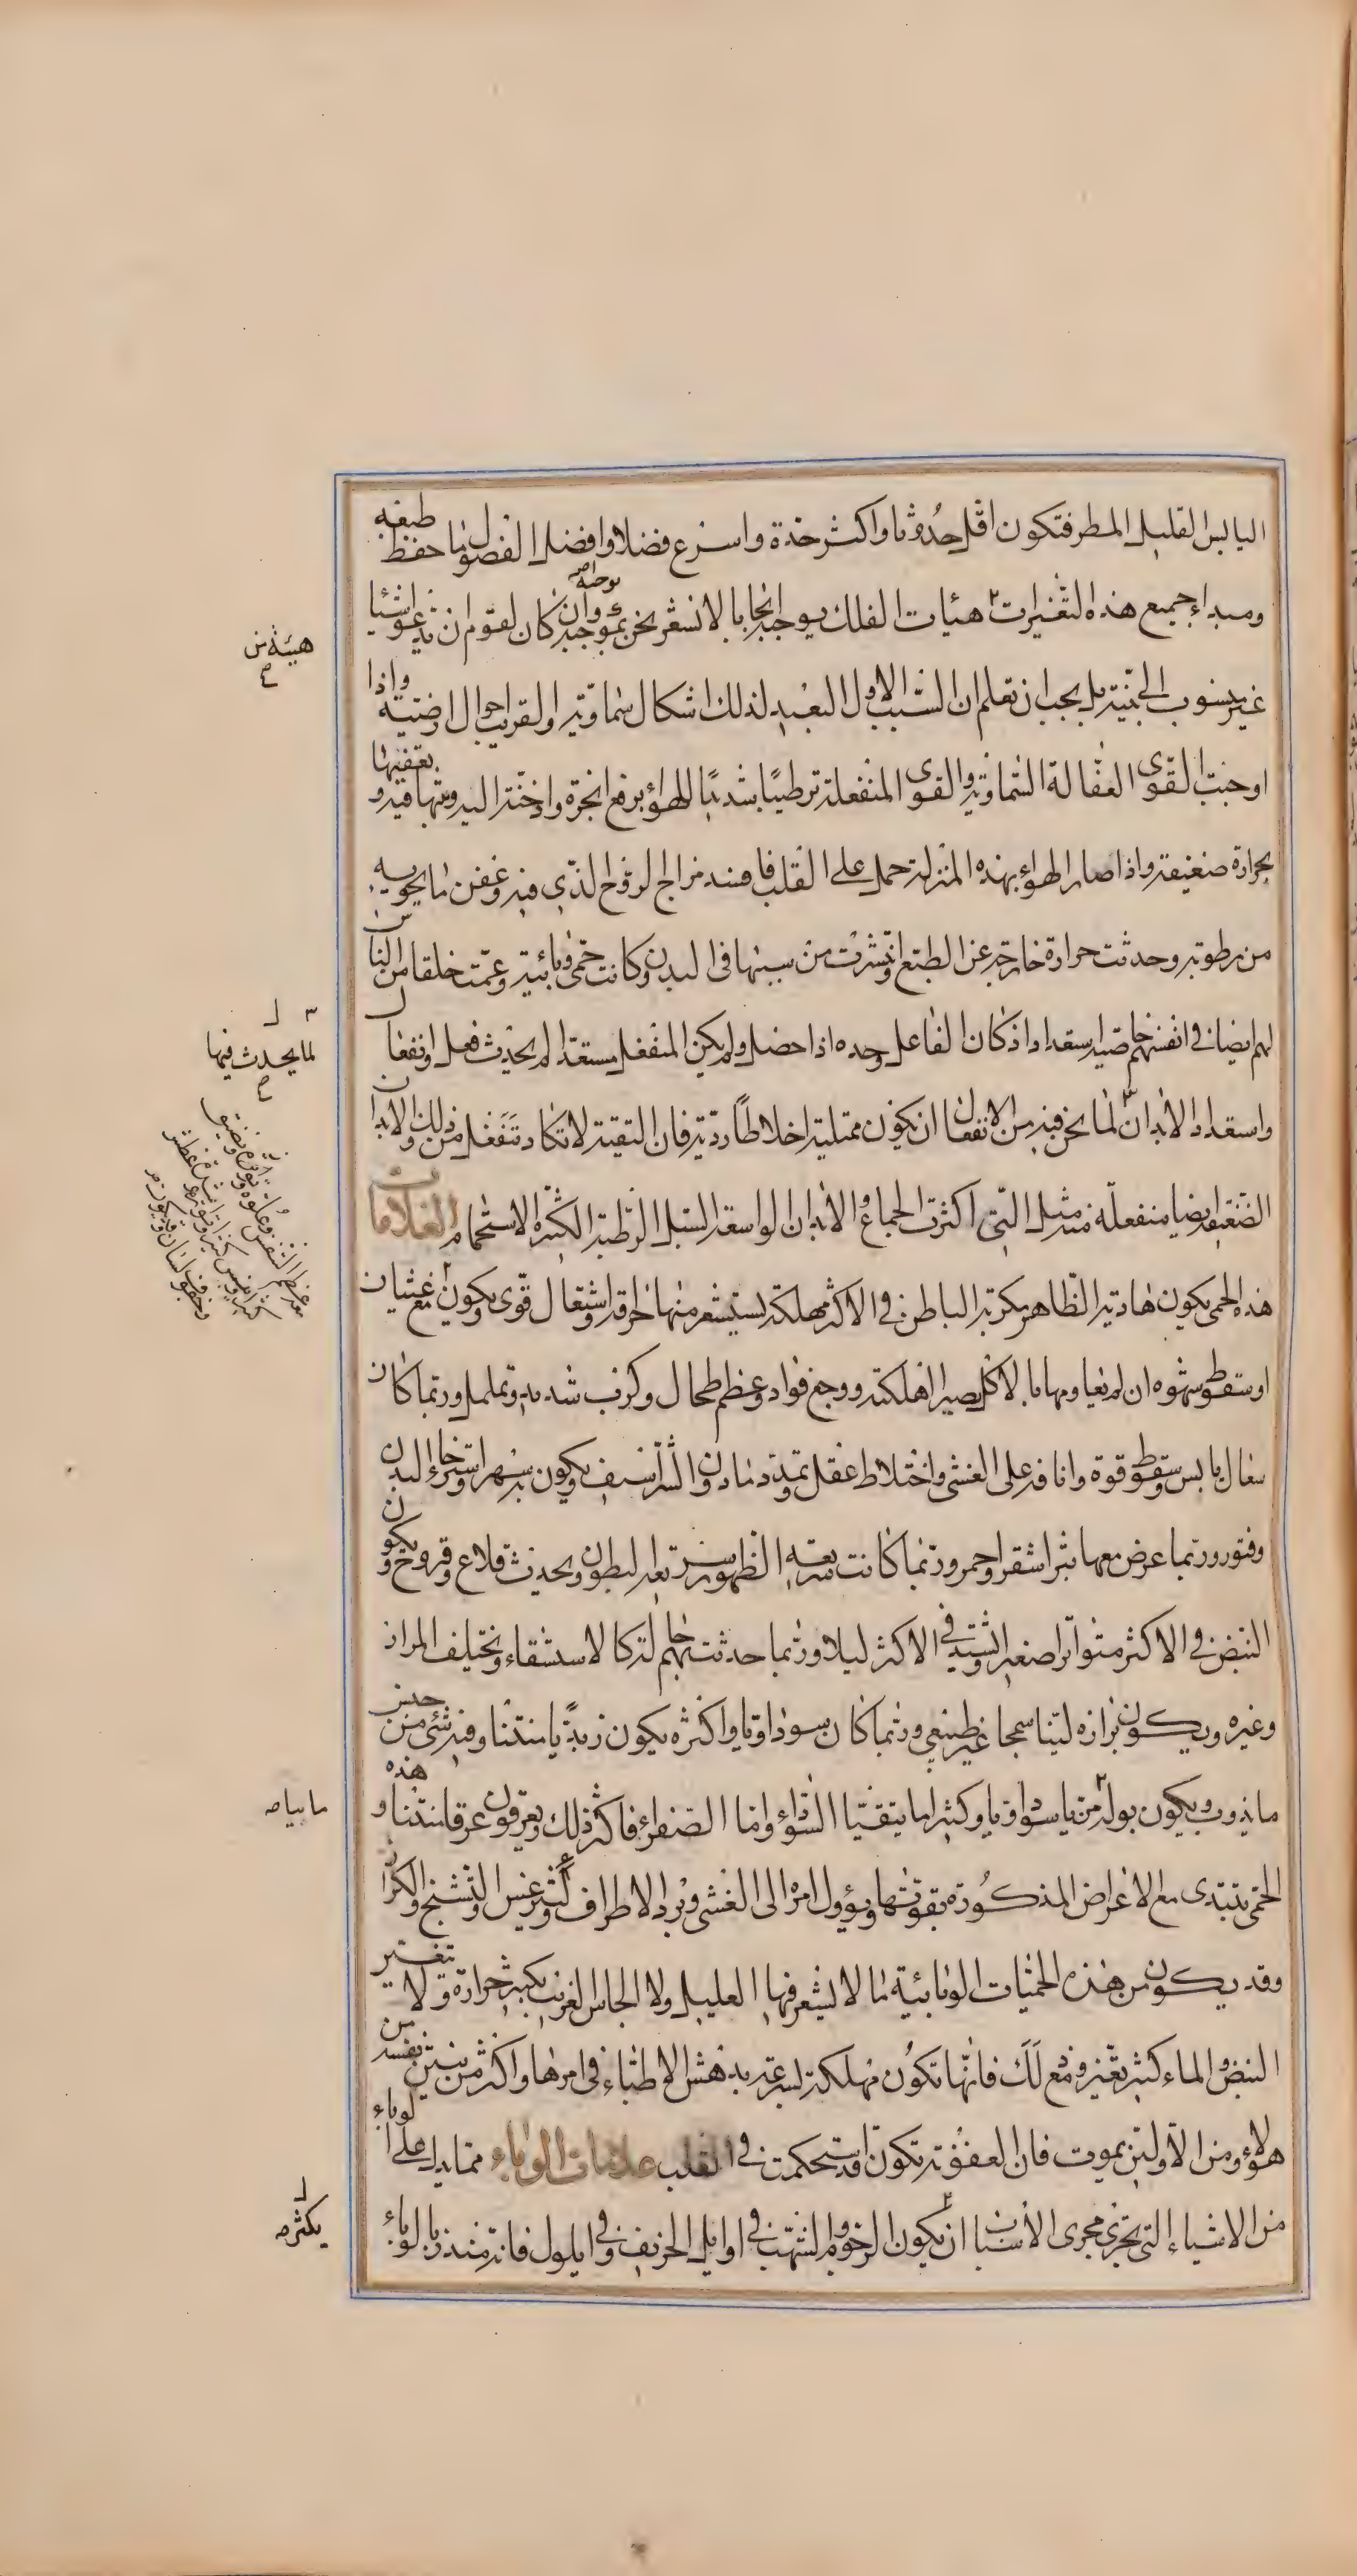 اليابس القليل المطر فتكون اقل حدوثا واكثر حدة واسرع فصلا وافضل الفصول ما حفظ طبعه
ومبداء جميع هذه التغيرات هيئات الفلك يوجبه ايجابا لا نشعر نحن بموجبه وان كان لقوم ان يدعوا شيئا
غير منسوب الى بينة بل يجب ان تعلم ان السبب الاول البعيد لذلك اشكال سماوية والقريب احوال ارضية واذا
اوجبت القوى الفعالة السماوية والقوى المنفعلة ترطيبا شديدا للهواء برفع ابخرة وادخنة اليه وبثها فيه و بعفنها
بحرارة ضعيفة واذا صار الهواء بهذه المنزلة حمل على القلب فافسد مزاج الروح الذي فيه وعفن ما يحويه
من رطوبة وحدثت حرارة خارجة عن الطبع وانتشرت من سببها في البدن وكانت حمى وبائية وعمت خلقا من الناس
لهم ايضا في انفسهم خاصية استعداد اذ كان الفاعل وحده اذا حصل ولم يكن المنفعل مستعدا لم يحدث فعل وانفعال
واستعداد الابدان لما نحن فيه من الانفعال ان يكون ممتلية اخلاطا ردية فان النقية لا تكاد تنفعل من ذلك والابدان
الضعيفة ايضا منفعلة منه مثل التي اكثرت الجماع والابدان الواسعة السبل الرطبة الكثيرة الاستحمام العلامات
هذه الحمى يكون هادية الظاهر مكربة الباطن في الاكثر مهلكة يستشعر منها احراق واشتعال قوى ويكون مع غثيان
او سقوط شهوة ان لم يعاومها بالاكل يصير الهلكة ووجع فواد وعظم طحال وكرب شديد وتململ وربما كان
سعال يابس وسقوط قوة وانافة على الغشى واختلاط عقل وتمدد ما دون الشراسيف ويكون به سهر واسترخاء البدن
وفتور وربما عرض معها بثر اشقر واحمر وربما كانت سريعة الظهور سريعة البطون ويحدث قلاع وقروح ويكون
النبض في الاكثر متواترا صغيرا ويشتد في الاكثر ليلا وربما حدثت بهم حالة كالاستسقاء ويختلف المرار
وغيره ويكون برازه لينا سمجا غير طبيعي وربما كان سوداويا واكثره يكون زبديا منتنا وفيه شئ من جنس
ما يذوب ويكون بوله مريا سوداويا وكثيرا ما يتقيا السوداء واما الصفراء فاكثر ذلك ويعرقون عرقا منتنا و هذه
الحمى تبتدى مع الاعراض المذكورة بقوتها ويؤول امره الى الغشى وبرد الاطراف وليثرغس والتشنج والكزاز
وقد يكون من هذه الحميات الوبائية ما لا يشعر فيها العليل ولا الجاس الغريب بكبير حرارة ولا تغير
النبض والماء كثير تغير ومع ذلك فانها تكون مهلكة بسرعة يدهش الاطباء في امرها واكثر من ينتن نفسه من
هولاء ومن الاولين يموت فان العفونة تكون قد استحكمت في القلب علامات الوباء مما يدل على الوباء
من الاشياء التي تجري مجرى الاسباب ان يكون الرجوم والشهب في اوايل الخريف وفي ايلول فانه منذر بالوباء
هيئة من
لما يحدث فيها
مابياه
يكثر